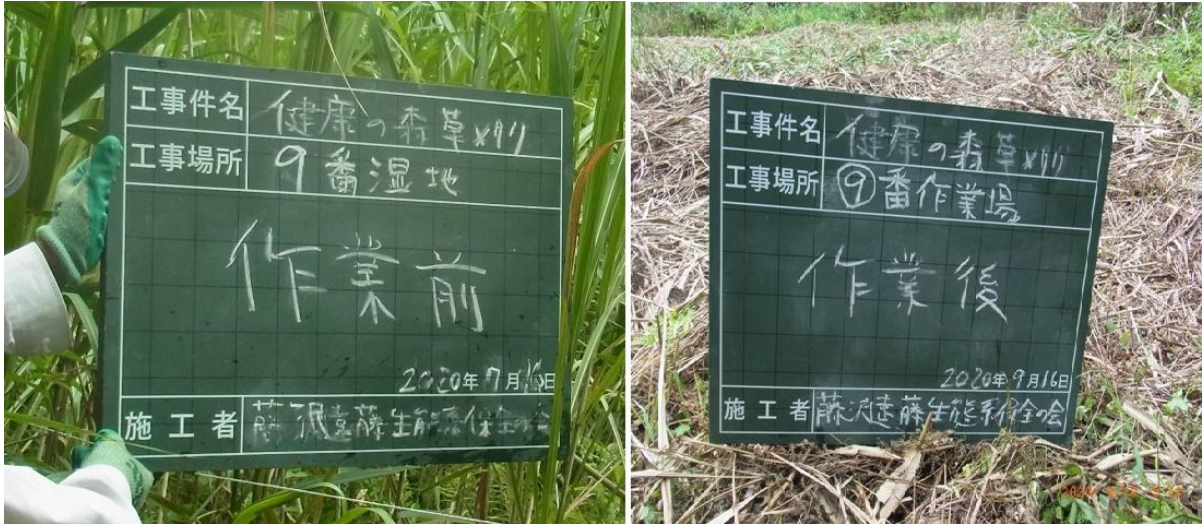 工事件名 健康の森草刈り
工事場所 9番湿地
作業前
2020年7月16日
施工者 藤沢遠藤生態系保全の会
工事件名 健康の森草刈り
工事場所 ⑨番作業場
作業後
2020年9月16日
施工者 藤沢遠藤生態系保全の会